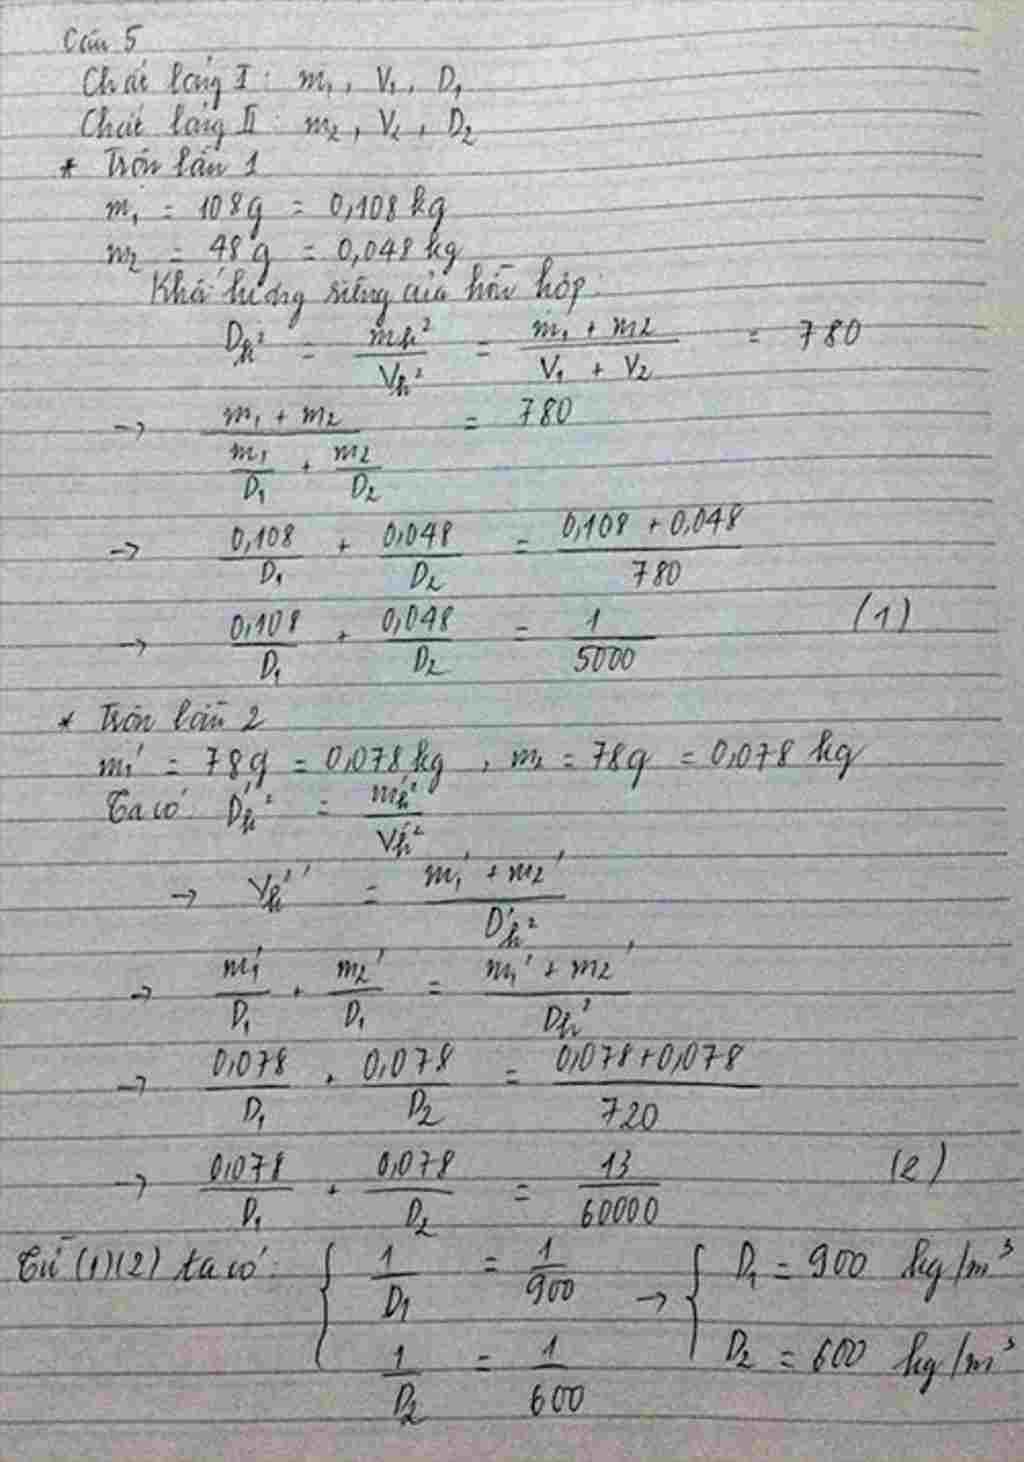 Câu 5
Chất lỏng I : m₁, V₁, D₁
Chất lỏng II : m₂, V₂, D₂
* Trộn lần 1
m₁ = 108g = 0,108 kg
m₂ = 48g = 0,048 kg
Khối lượng riêng của hỗn hợp:
D_h² = m_h²/V_h² = (m₁ + m₂)/(V₁ + V₂) = 780
→ (m₁ + m₂)/(m₁/D₁ + m₂/D₂) = 780
→ 0,108/D₁ + 0,048/D₂ = (0,108 + 0,048)/780
→ 0,108/D₁ + 0,048/D₂ = 1/5000 (1)
* Trộn lần 2
m₁' = 78g = 0,078 kg, m₂ = 78g = 0,078 kg
Ta có: D'_h² = m'_h²/V'_h²
→ V_h'' = (m₁' + m₂')/D'_h²
→ m₁'/D₁ + m₂'/D₁ = (m₁' + m₂')/D_h'
→ 0,078/D₁ + 0,078/D₂ = (0,078+0,078)/720
→ 0,078/D₁ + 0,078/D₂ = 13/60000 (2)
Từ (1)(2) ta có: { 1/D₁ = 1/900 → { D₁ = 900 kg/m³
1/D₂ = 1/600 D₂ = 600 kg/m³